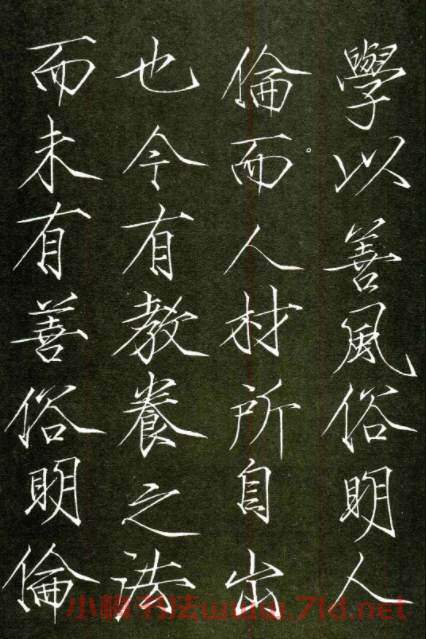 學以善風俗明人
倫而人材所自出
也今有教養之法
而未有善俗明倫
小楷书法www.7ld.net